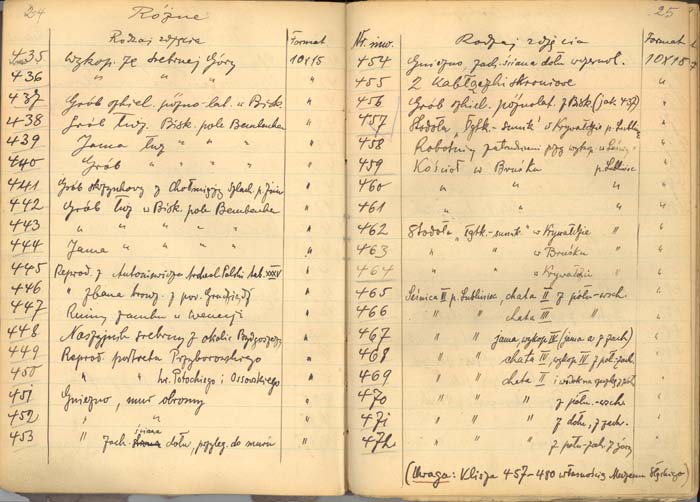 24 Różne
Rodzaj zdjęcia Format
435 Wykop. ze Srebrnej Góry 10x15
436 " " " "
437 Grób szkiel. późno-lat. w Bisk. "
438 Grób łuż. Bisk. pole Bembenka "
439 Jama łuż " " " "
440 Grób " " " "
441 Grób skrzynkowy z Chołmięży szlach. p. "
442 Grób łuż w Bisk. pole Bembenka "
443 " " " " " "
444 Jama " " " " "
445 Reprod. z Antoniewicza Archeol. Polski tab. XXXV "
446 " zbana brąz. z pow. "
447 Ruiny zamku w Wenecji "
448 Naszyjnik srebrny z okolic Bydgoszczy "
449 Reprod. portretu Przyborowskiego "
450 " " hr. Potockiego i Ossowskiego "
451 Gniezno, mur obronny "
452 " " "
453 " zach. ściana dołu, przyleg. do muru "
25
Nr. inw. Rodzaj zdjęcia Format
454 Gniezno, zach. ściana dołu 10x15
455 2 Kabłączki skroniowe "
456 Grób szkiel. późnolat. z Bisk (jak 437) "
457 Stodoła " " w Krywałdzie p. Lubl. "
458 Robotnicy zatrudnieni przy wykop. "
459 Kościół w Bruśku p. Lubliniec "
460 " " " "
461 " " " "
462 Stodoła " " w Krywałdzie " "
463 " " w Bruśku " "
464 " " w Krywałdzie " "
465 p. Lubliniec, chata II z półn-wsch. "
466 " " chata III " "
467 " " jama, wykop IV (jama a z zach) "
468 " " chata III, wykop IV z poł-zach. "
469 " " chata II i "
470 " " " z półn.-wsch "
471 " " " z dołu, z zach. "
472 " " " z połu-zach. z góry "
(Uwaga: Klisze 457-480 własnością Muzeum Śląskiego)